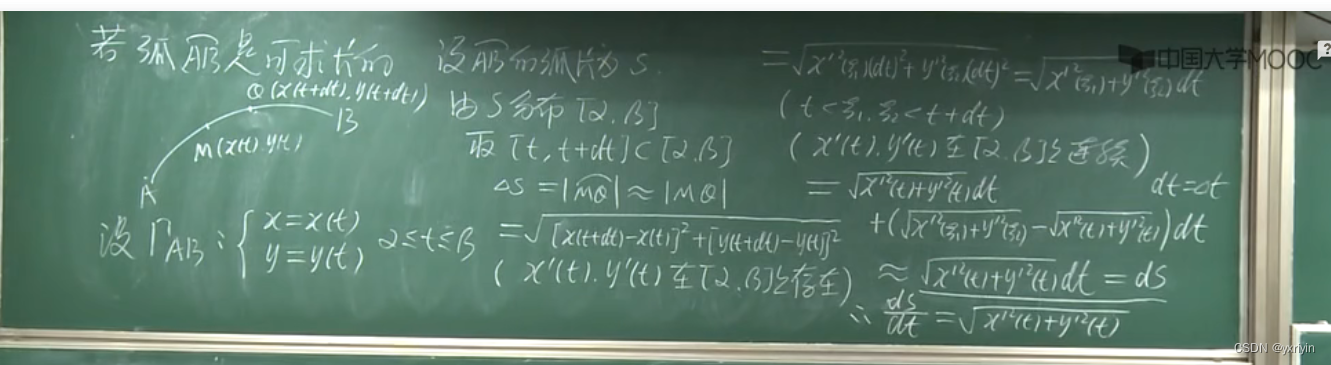 若弧AB是可求长的
Q(x(t+dt).y(t+dt))
B
M(x(t).y(t))
A
设Γ_AB:{ x=x(t)
y=y(t) α≤t≤β
设AB的弧长为S.
由S分布[α.β]
取[t,t+dt]⊂[α.β]
ΔS=|MQ|≈|MQ|
=√([x(t+dt)-x(t)]²+[y(t+dt)-y(t)]²)
(x'(t).y'(t)在[α.β]上存在)
=√(x'²(ξ₁)(dt)²+y'²(ξ₂)(dt)²)=√(x'²(ξ₁)+y'²(ξ₂))dt
(t<ξ₁.ξ₂<t+dt)
(x'(t).y'(t)在[α.β]上连续)
=√(x'²(t)+y'²(t))dt
dt=Δt
+(√(x'²(ξ₁)+y'²(ξ₂))-√(x'²(t)+y'²(t)))dt
≈√(x'²(t)+y'²(t))dt=dS
∴ds/dt=√(x'²(t)+y'²(t))
中国大学MOOC
?
CSDN @yxriyin